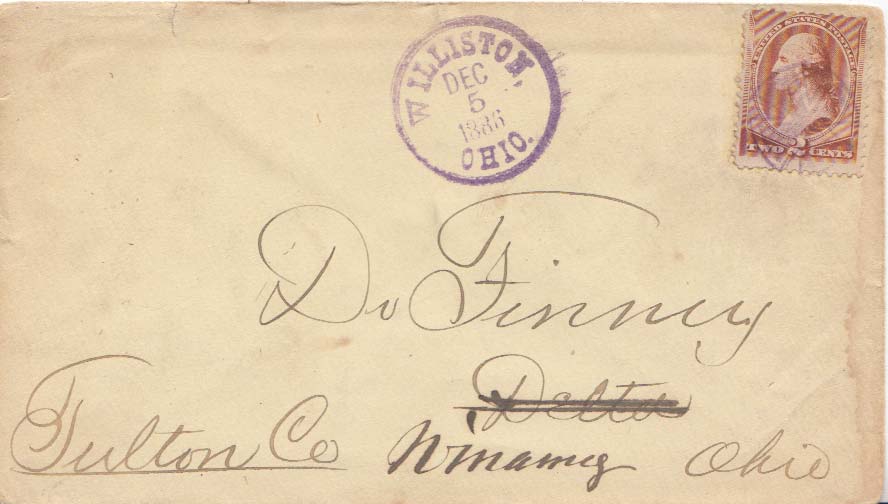 WILLISTON,
DEC
5
1886
OHIO.
UNITED STATES POSTAGE
TWO 2 CENTS
Dr Finney
Delta
Fulton Co Winameg Ohio